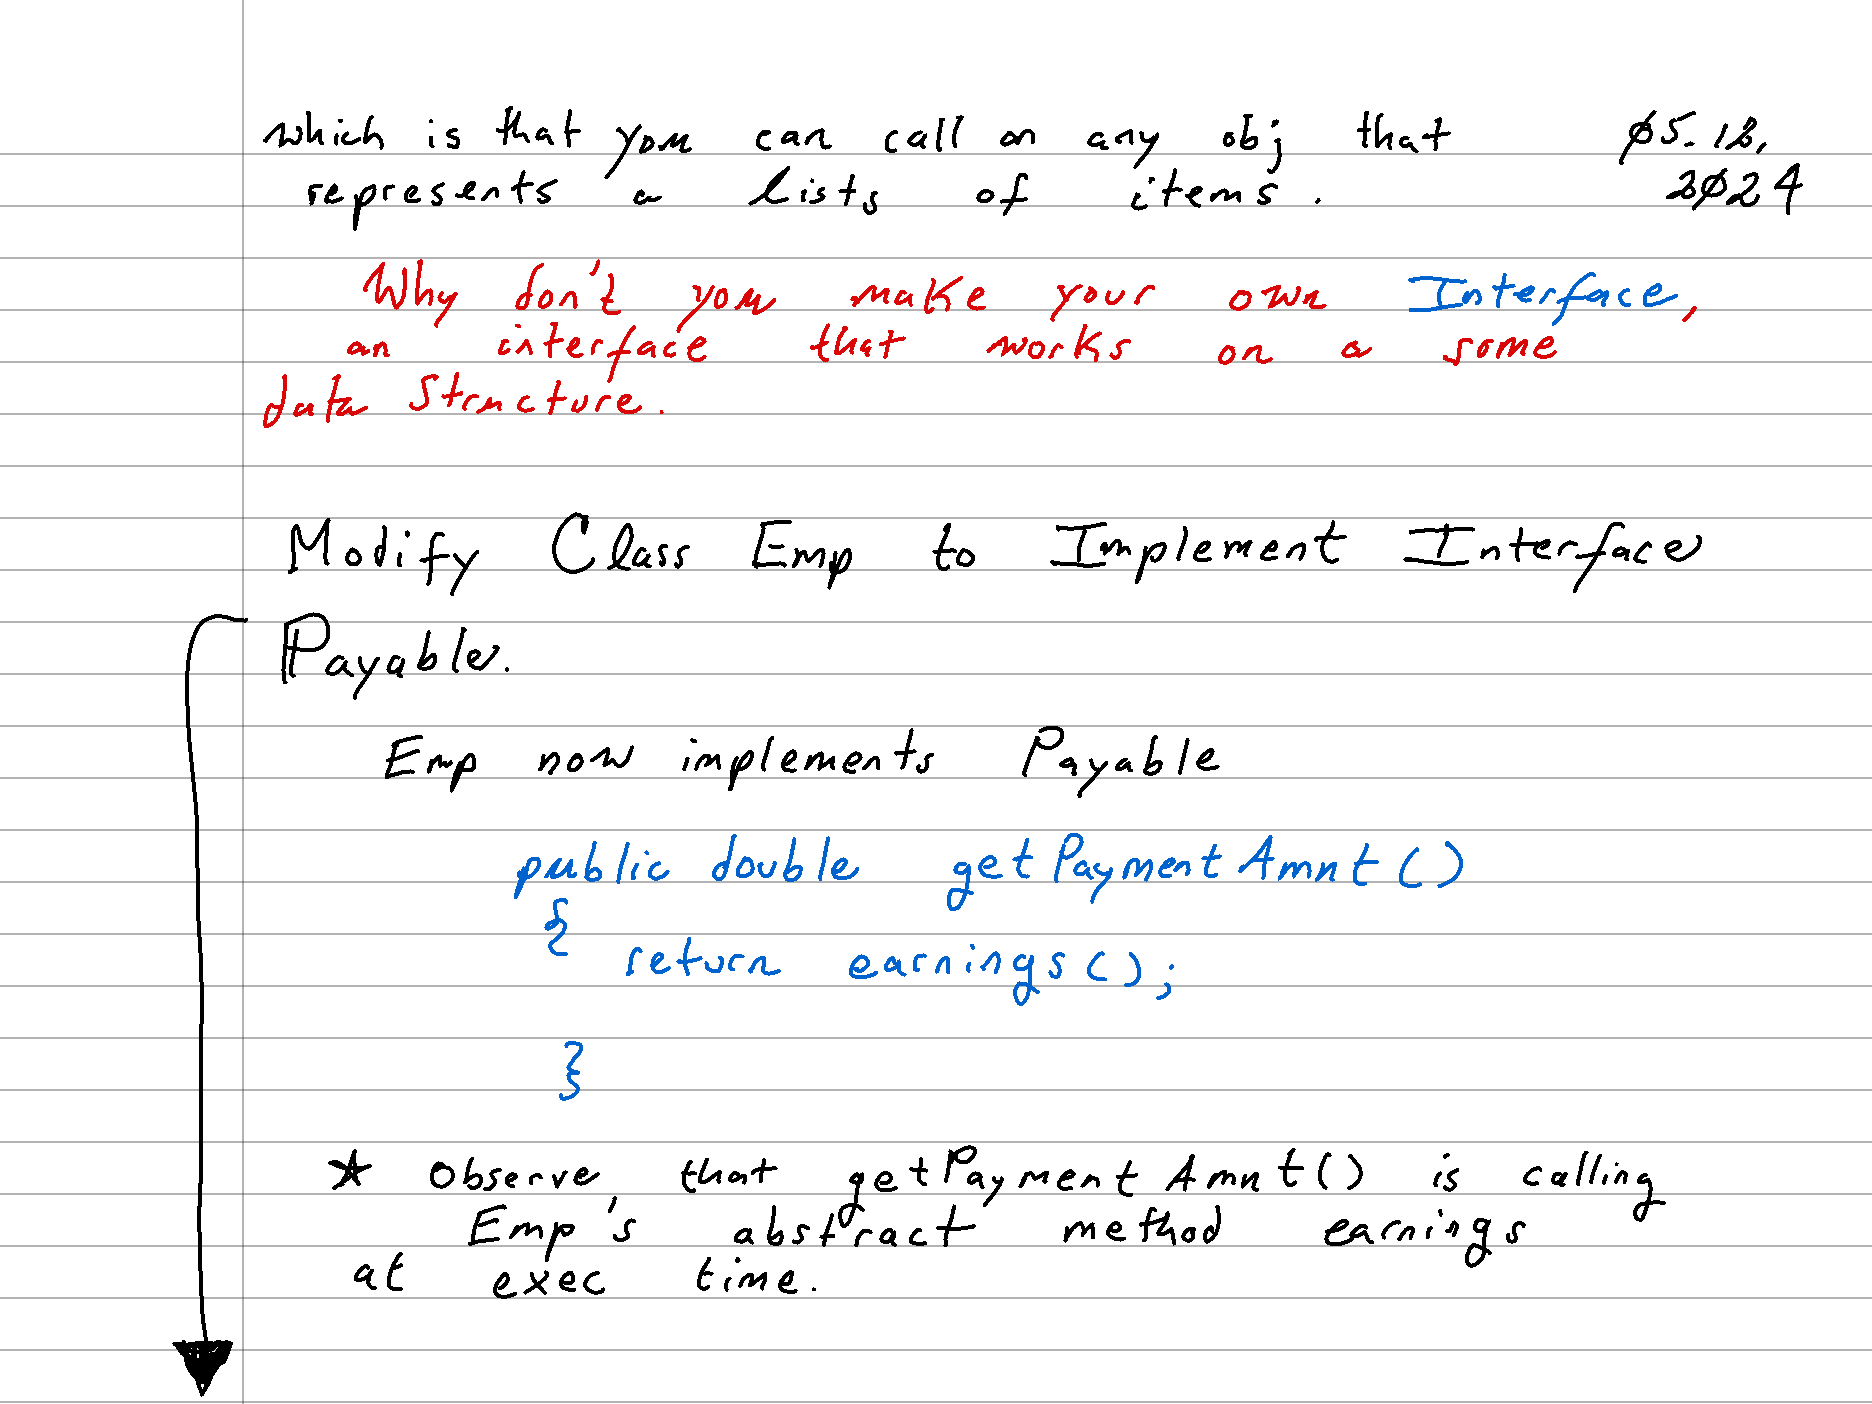 which is that you can call on any obj that
Ø5.18,
represents a lists of items.
2Ø24
Why don't you make your own Interface,
an interface that works on a some
data Structure.
Modify Class Emp to Implement Interface
Payable.
Emp now implements Payable
public double getPaymentAmnt()
{ return earnings();
}
★ Observe that getPaymentAmnt() is calling
Emp's abstract method earnings
at exec time.